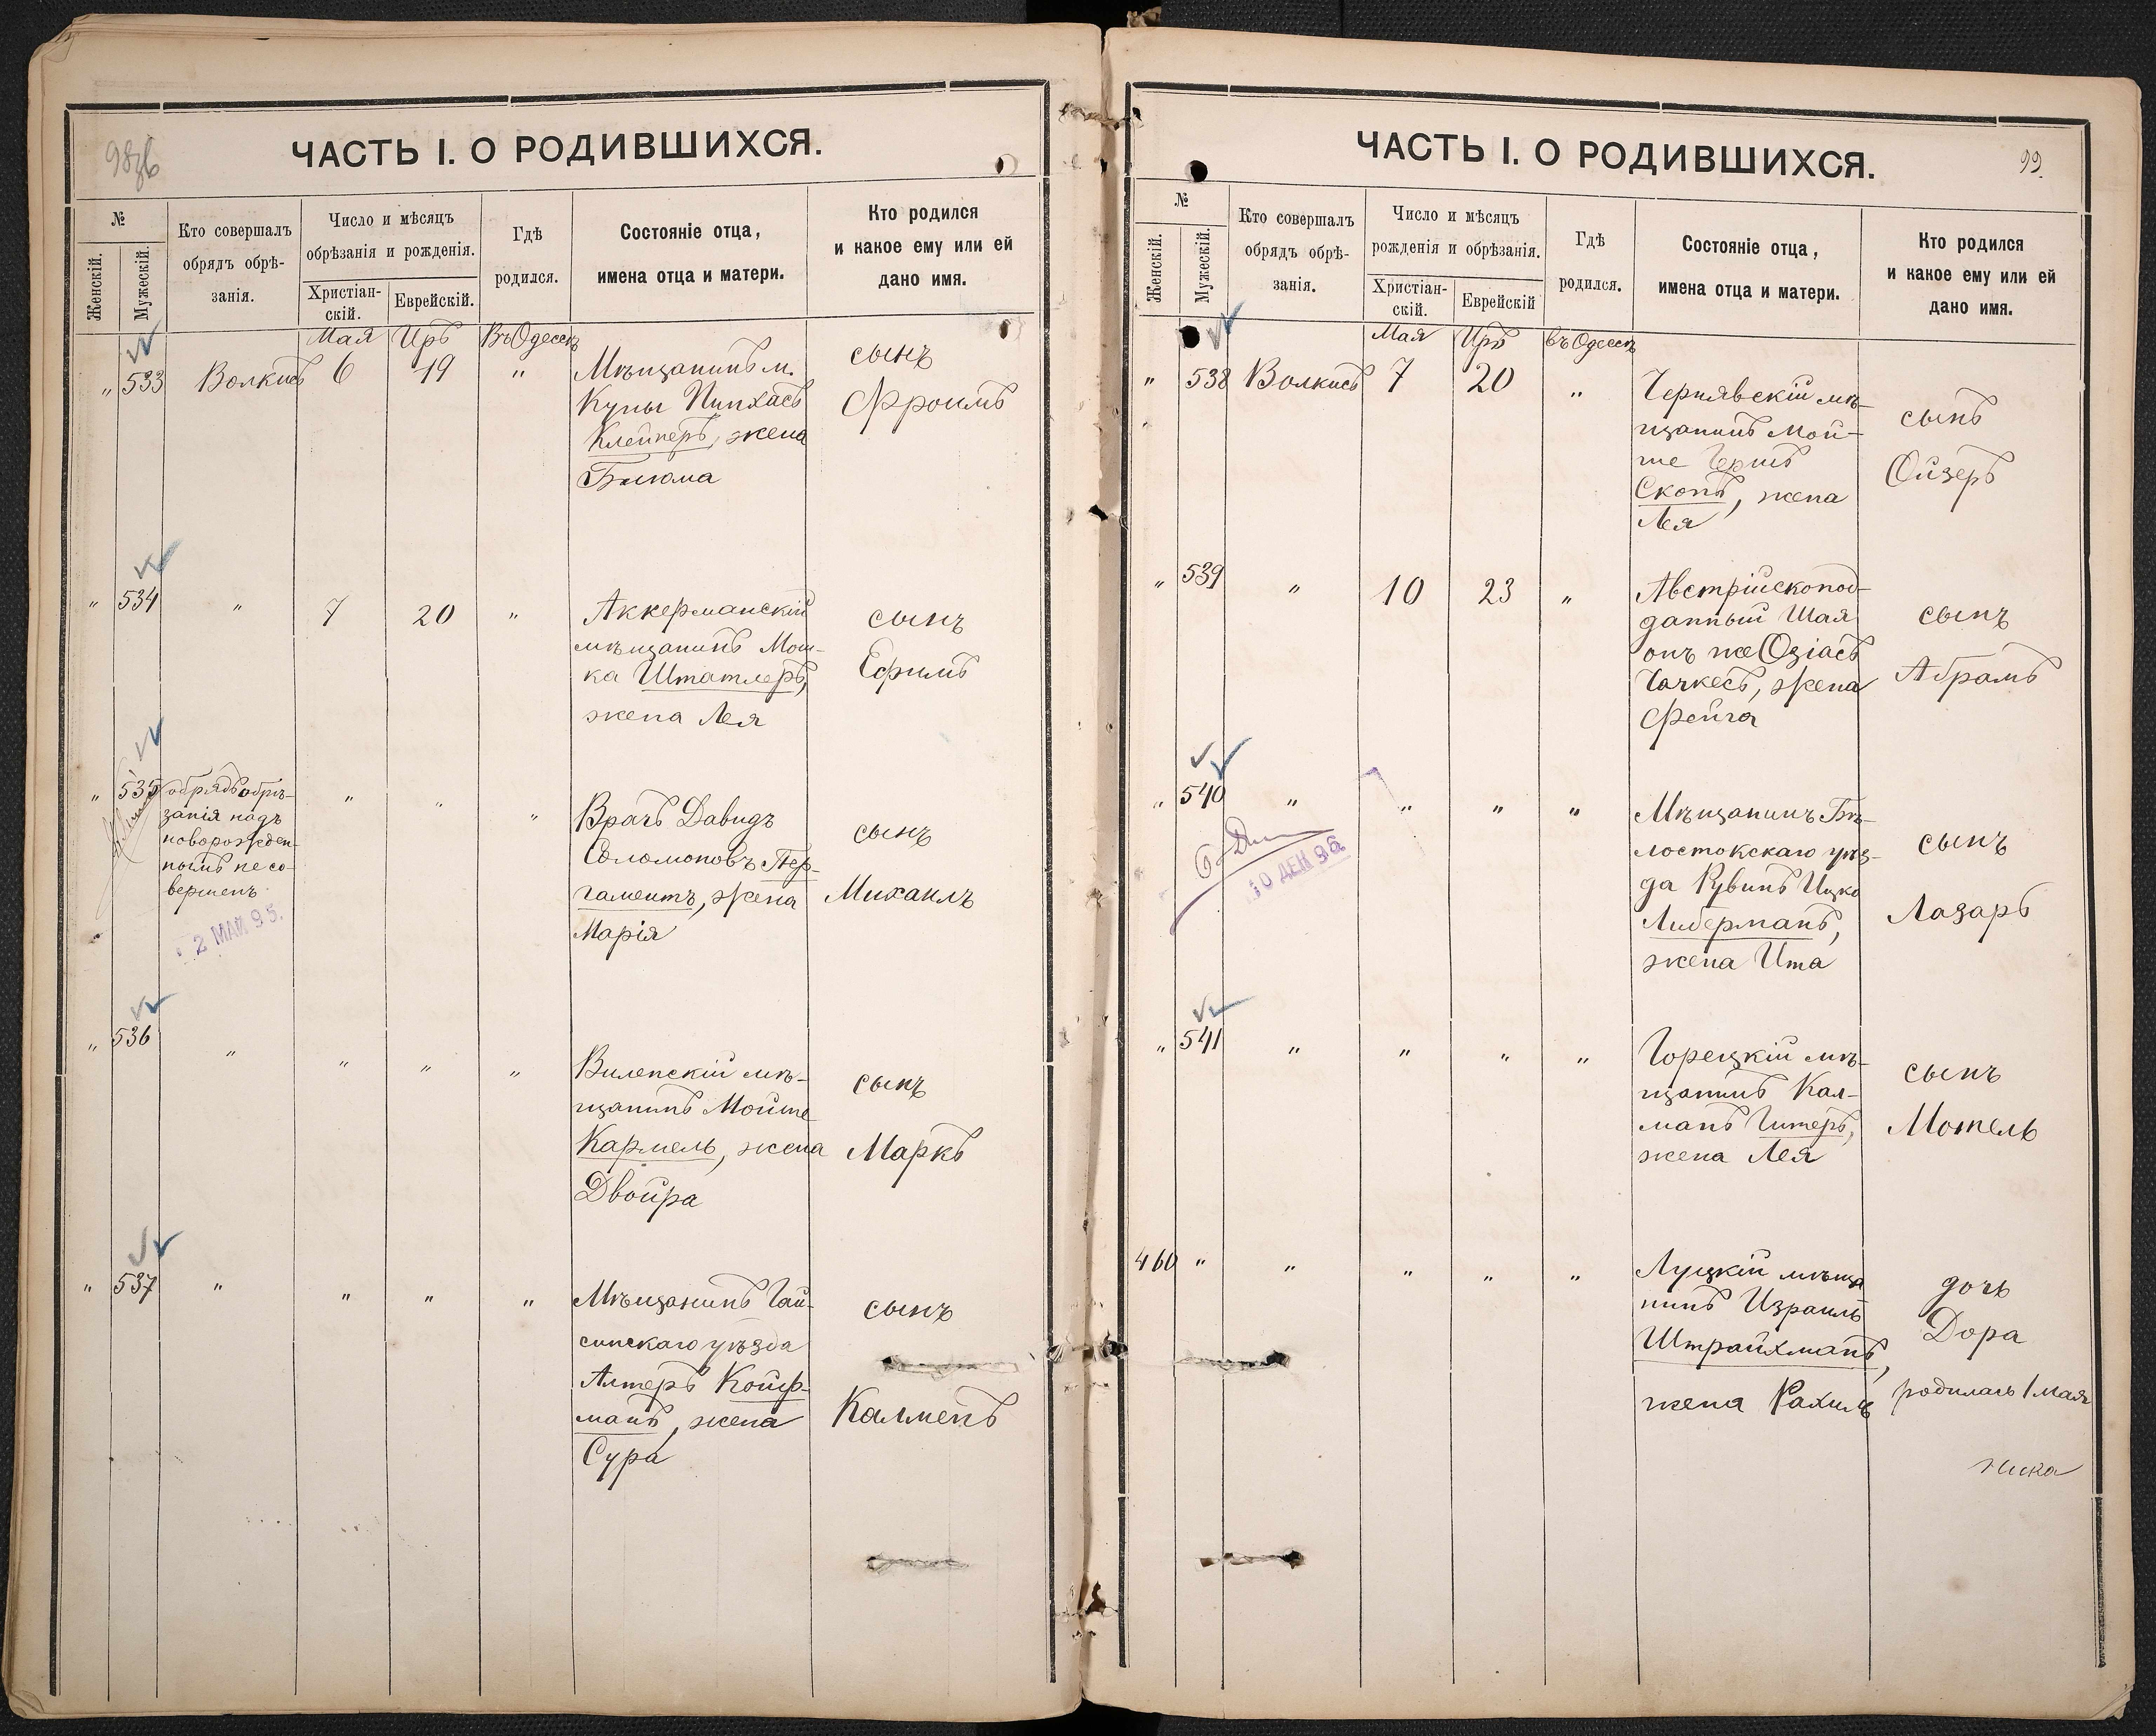 98об
ЧАСТЬ I. О РОДИВШИХСЯ.
№
Женскій.
Мужескій.
Кто совершалъ
обрядъ обрѣ-
занія.
Число и мѣсяцъ
обрѣзанія и рожденія.
Христіан-
скій.
Еврейскій.
Гдѣ
родился.
Состояніе отца,
имена отца и матери.
Кто родился
и какое ему или ей
дано имя.
Мая Иръ Въ Одессѣ
" 533 Волкисъ 6 19 " Мѣщанинъ м.
Куны Пинхасъ
Клейнеръ, жена
Блюма
сынъ
Фроимъ
" 534 " 7 20 " Аккерманскій
мѣщанинъ Мош-
ка Штатлеръ,
жена Лея
сынъ
Ефимъ
" 535 обрядъ обрѣ-
занія надъ
новорожден-
нымъ не со-
вершенъ
2 МАЙ 95.
" " " Врачъ Давидъ
Соломоновъ Пер-
гаментъ, жена
Марія
сынъ
Михаилъ
" 536 " " " " Виленскій мѣ-
щанинъ Мойше
Кармель, жена
Двойра
сынъ
Маркъ
" 537 " " " " Мѣщанинъ Гай-
синскаго уѣзда
Алтеръ Койф-
манъ, жена
Сура
сынъ
Калменъ
99.
ЧАСТЬ I. О РОДИВШИХСЯ.
№
Женскій.
Мужескій.
Кто совершалъ
обрядъ обрѣ-
занія.
Число и мѣсяцъ
рожденія и обрѣзанія.
Христіан-
скій.
Еврейскій
Гдѣ
родился.
Состояніе отца,
имена отца и матери.
Кто родился
и какое ему или ей
дано имя.
Мая Иръ въ Одессѣ
" 538 Волкисъ 7 20 " Чернявскій мѣ-
щанинъ Мой-
ше Гершъ
Скопъ, жена
Лея
сынъ
Ойзеръ
" 539 " 10 23 " Австрійскопод-
данный Шая
онъ же Озіасъ
Чачкесъ, жена
Фейга
сынъ
Абрамъ
" 540 " " " " Мѣщанинъ Бѣ-
лостокскаго уѣз-
да Рувинъ Ицко
Либерманъ,
жена Ита
сынъ
Лазарь
10 ДЕК 96
" 541 " " " " Горецкій мѣ-
щанинъ Кал-
манъ Гитеръ,
жена Лея
сынъ
Мотель
460 " " " " " Луцкій мѣща
нинъ Израиль
Штрайхманъ,
жена Рахиль
дочь
Дора
родилась 1 мая